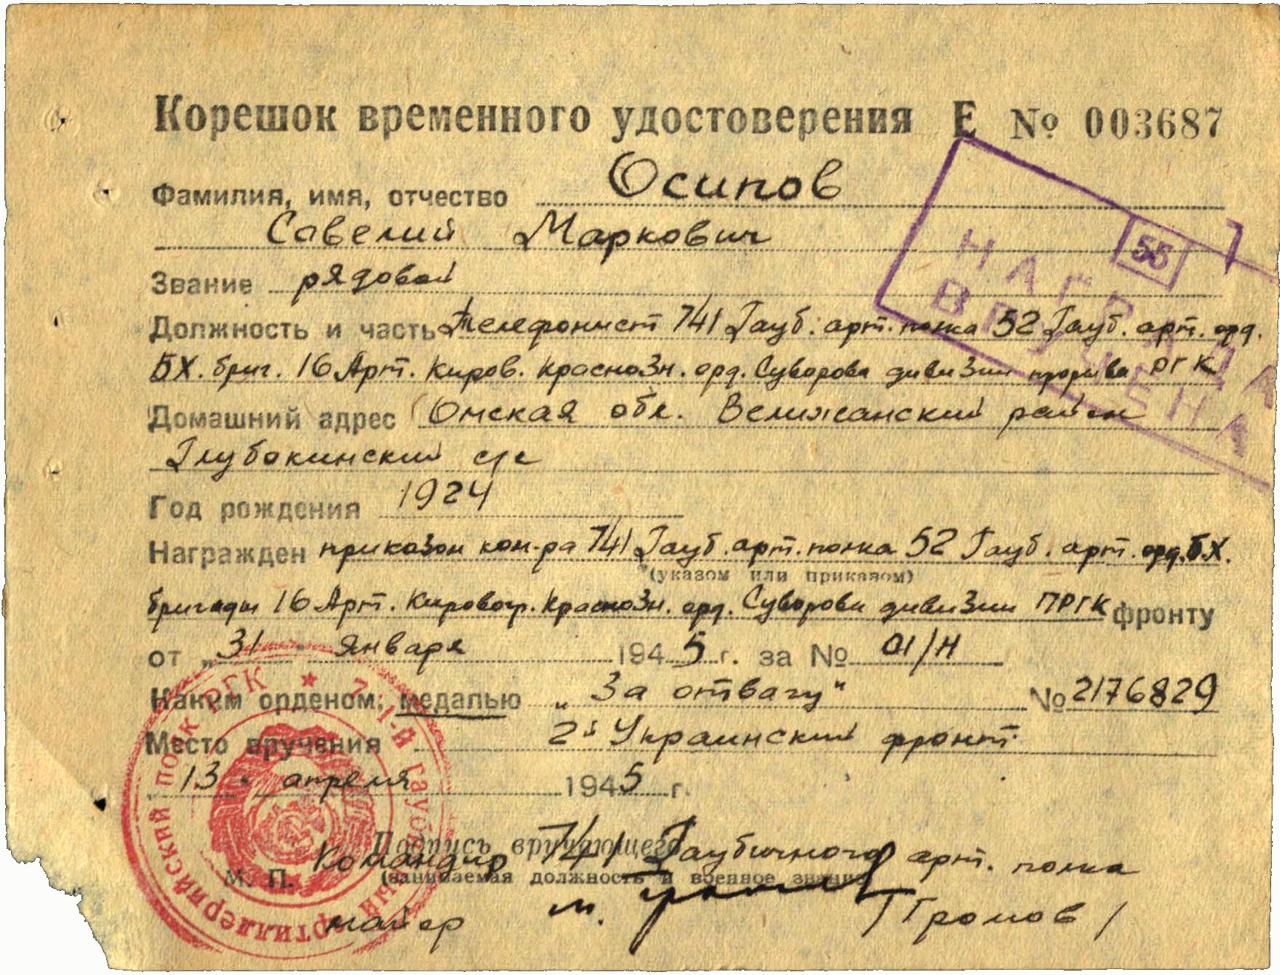 Корешок временного удостоверения Е № 003687
Фамилия, имя, отчество Осипов
Савелий Маркович
Звание рядовой
55
НАГРАДА
ВРУЧЕНА
Должность и часть Телефонист 741 Гауб. арт. полка 52 Гауб. арт. орд.
БХ. бриг. 16 Арт. Киров. Краснозн. орд. Суворова дивизии прорыва РГК
Домашний адрес Омская обл. Велижанский район
Глубокинский с/с
Год рождения 1924
Награжден приказом ком-ра 741 Гауб. арт. полка 52 Гауб. арт. орд. БХ.
(указом или приказом)
бригады 16 Арт. Кировогр. Краснозн. орд. Суворова дивизии ПРГК фронту
от „31 " января 1945 г. за № 01/Н
Каким орденом, медалью „За отвагу" № 2176829
Место вручения 2й Украинский фронт
13 " апреля 1945 г.
Подпись вручающего
Командир 741 Гаубичного арт. полка
М. П. (занимаемая должность и военное звание)
майор /Громов/
741-й Гаубичный артиллерийский полк РГК